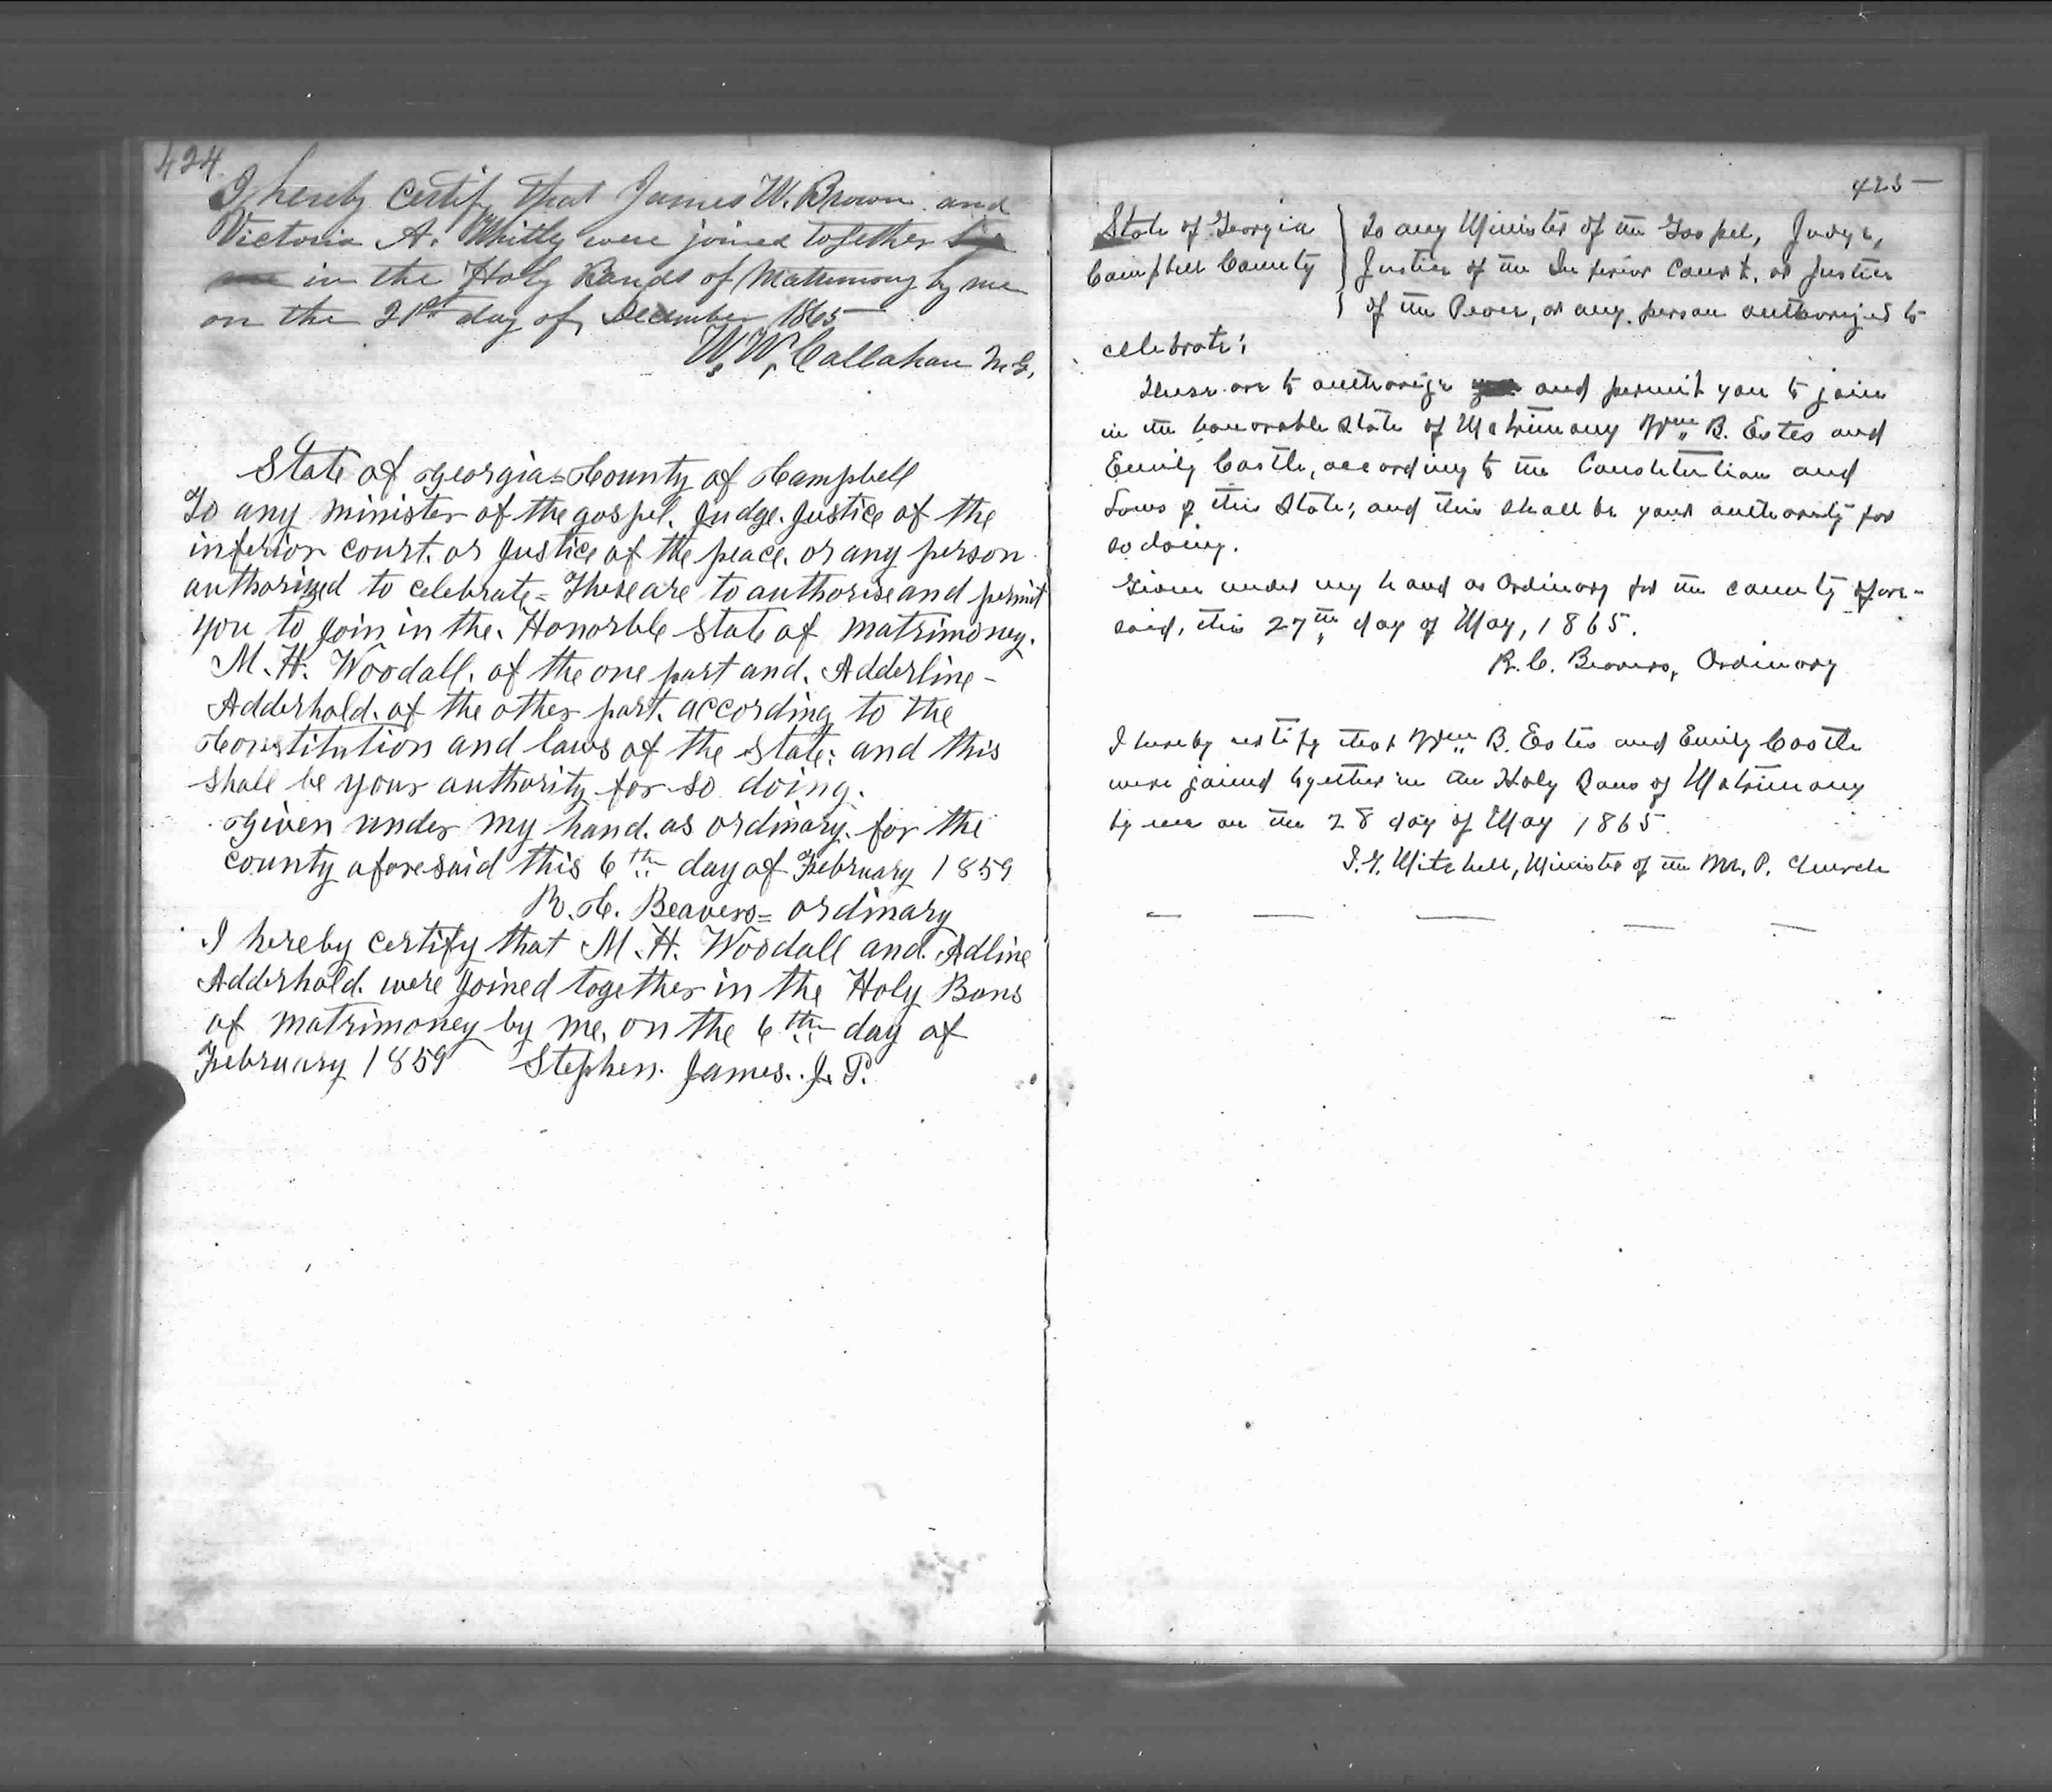 424
I hereby Certify that James W. Brown and
Victoria A. Whitly were joined together
in the Holy Bands of Matrimony by me
on the 21st day of December 1865
W. W. Callahan M.G.
State of Georgia = County of Campbell
To any minister of the gospel. Judge. Justice of the
inferior court. or Justice of the peace. or any person
authorized to celebrate = These are to authorise and permit
you to Join in the. Honorble state of matrimoney.
M. H. Woodall. of the one part and. Adderline -
Adderhold. of the other part. according to the
Constitution and laws of the state: and this
shall be your authority for so doing.
Given under my hand. as ordinary. for the
county aforesaid this 6th day of February 1859
R. C. Beavers = ordinary
I hereby certify that M. H. Woodall and. Adline
Adderhold. were Joined together in the Holy Bans
of matrimoney by me, on the 6th day of
February 1859 Stephen. James. J. P.
425 —
State of Georgia } To any Minister of the Gospel, Judge,
Campbell County } Justice of the Inferior Court, or Justice
} of the Peace, or any person authorized to
celebrate:
These are to authorize and permit you to join
in the honorable state of Matrimony Wm. B. Estes and
Emily Castle, according to the Constitution and
Laws of this State; and this shall be your authority for
so doing.
Given under my hand as Ordinary for the county afore-
said, this 27th day of May, 1865.
R. C. Beavers, Ordinary
I hereby certify that Wm. B. Estes and Emily Castle
were joined together in the Holy Bans of Matrimony
by me on the 28 day of May 1865.
Mitchell, Minister of the M. P. Church